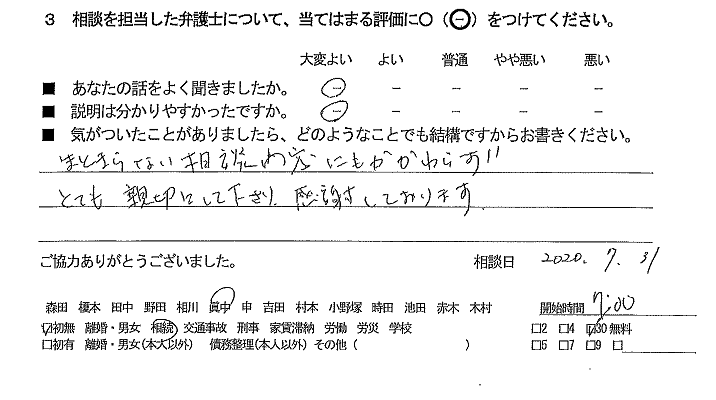 3 相談を担当した弁護士について、当てはまる評価に○（⊖）をつけてください。
大変よい よい 普通 やや悪い 悪い
■ あなたの話をよく聞きましたか。 － － － － －
■ 説明は分かりやすかったですか。 － － － － －
■ 気がついたことがありましたら、どのようなことでも結構ですからお書きください。
まとまらない相談内容にもかかわらず
とても親切にして下さり、感謝しております。
ご協力ありがとうございました。 相談日 2020. 7. 31
森田 榎本 田中 野田 相川 眞中 申 吉田 村本 小野塚 時田 池田 赤木 木村 開始時間 7:00
☑初無 離婚・男女 相続 交通事故 刑事 家賃滞納 労働 労災 学校 □2 □4 ☑30 無料
□初有 離婚・男女（本人以外） 債務整理（本人以外） その他（ ） □5 □7 □9 □